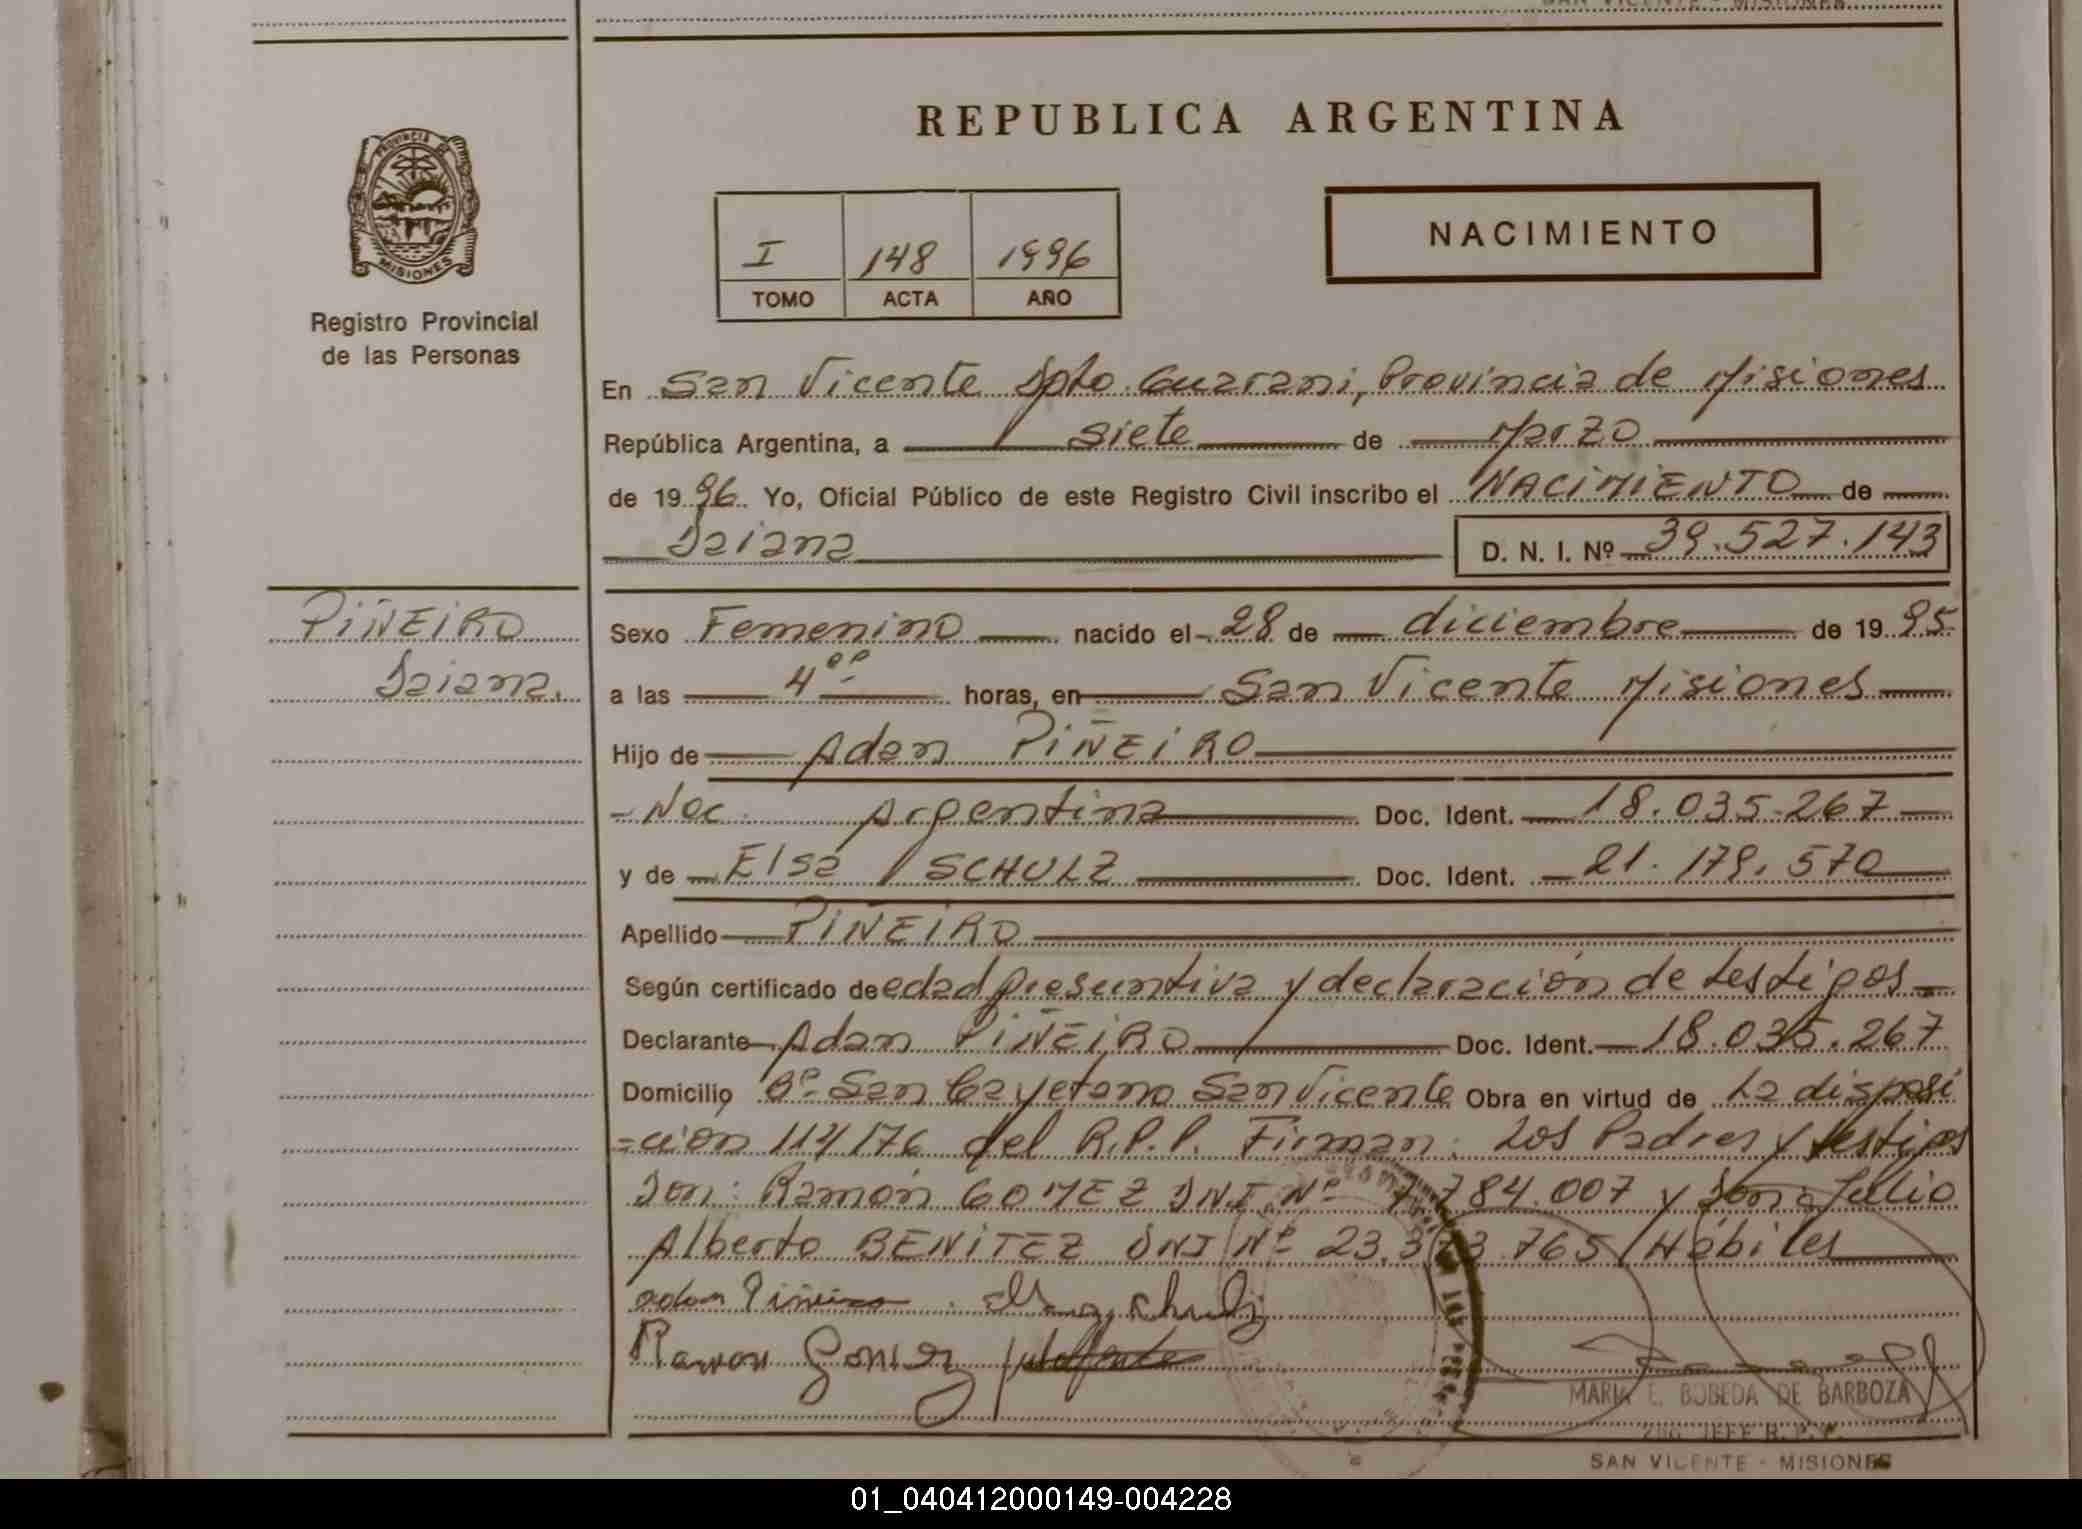 SAN VICENTE - MISIONES
REPUBLICA ARGENTINA
PROVINCIA DE
MISIONES
Registro Provincial
de las Personas
I 148 1996
TOMO ACTA AÑO
NACIMIENTO
En San Vicente Dpto. Guarani, Provincia de Misiones
República Argentina, a siete de Marzo
de 1996. Yo, Oficial Público de este Registro Civil inscribo el NACIMIENTO de
Daiana D. N. I. Nº 39.527.143
PIÑEIRO
Daiana.
Sexo Femenino nacido el 28 de diciembre de 1995
a las 4ºº horas, en San Vicente Misiones
Hijo de Adan PIÑEIRO
Nac. Argentina Doc. Ident. 18.035.267
y de Elsa SCHULZ Doc. Ident. 21.179.570
Apellido PIÑEIRO
Según certificado de edad presuntiva y declaración de testigos
Declarante Adan PIÑEIRO Doc. Ident. 18.035.267
Domicilio Bº San Cayetano San Vicente Obra en virtud de La disposi
=cion 114/76 del R.P.P. Firman: Los Padres y testigos
Don: Ramón GOMEZ DNI Nº 7.784.007 y Don: Julio
Alberto BENITEZ DNI Nº 23.373.765 Hábiles
adan Piñeiro
Ramon Gomez
MARIA E. BOBEDA DE BARBOZA
JEFE R. P. P.
SAN VICENTE - MISIONES
01_040412000149-004228